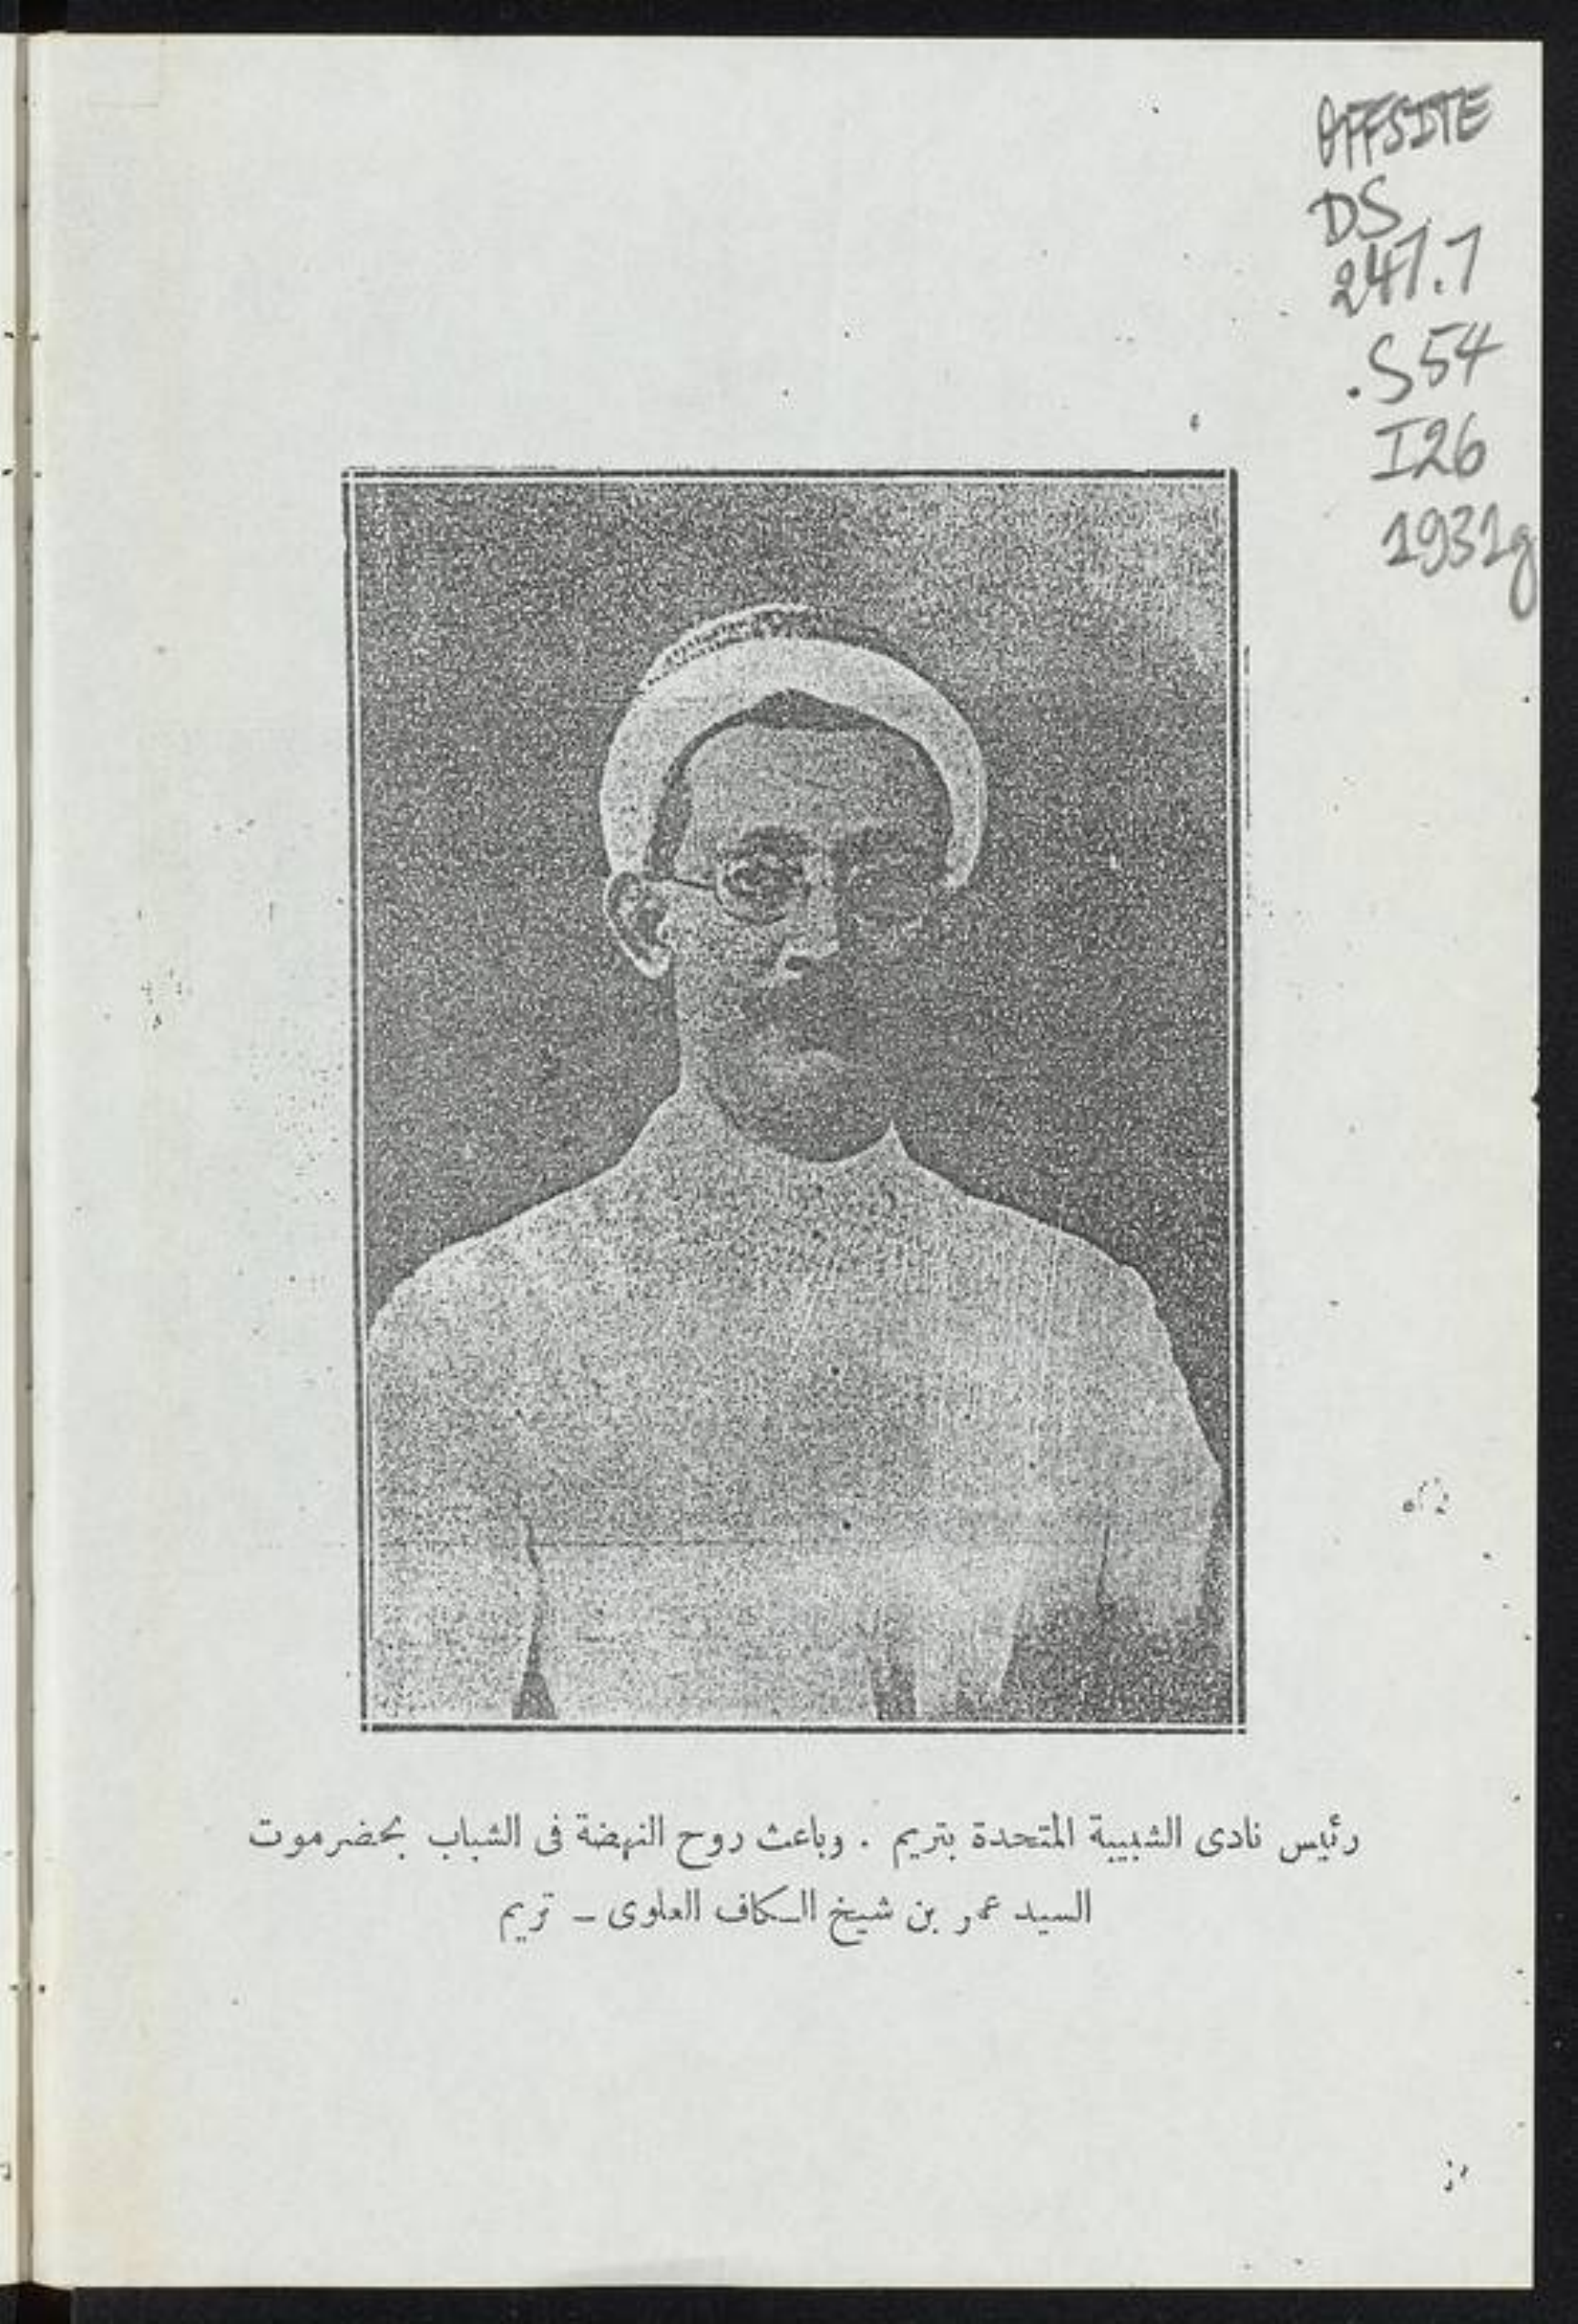 OFFSITE
DS
247.7
.S54
I26
1931g
رئيس نادى الشبيبة المتحدة بتريم . وباعث روح النهضة فى الشباب بحضرموت
السيد عمر بن شيخ الكاف العلوى – تريم